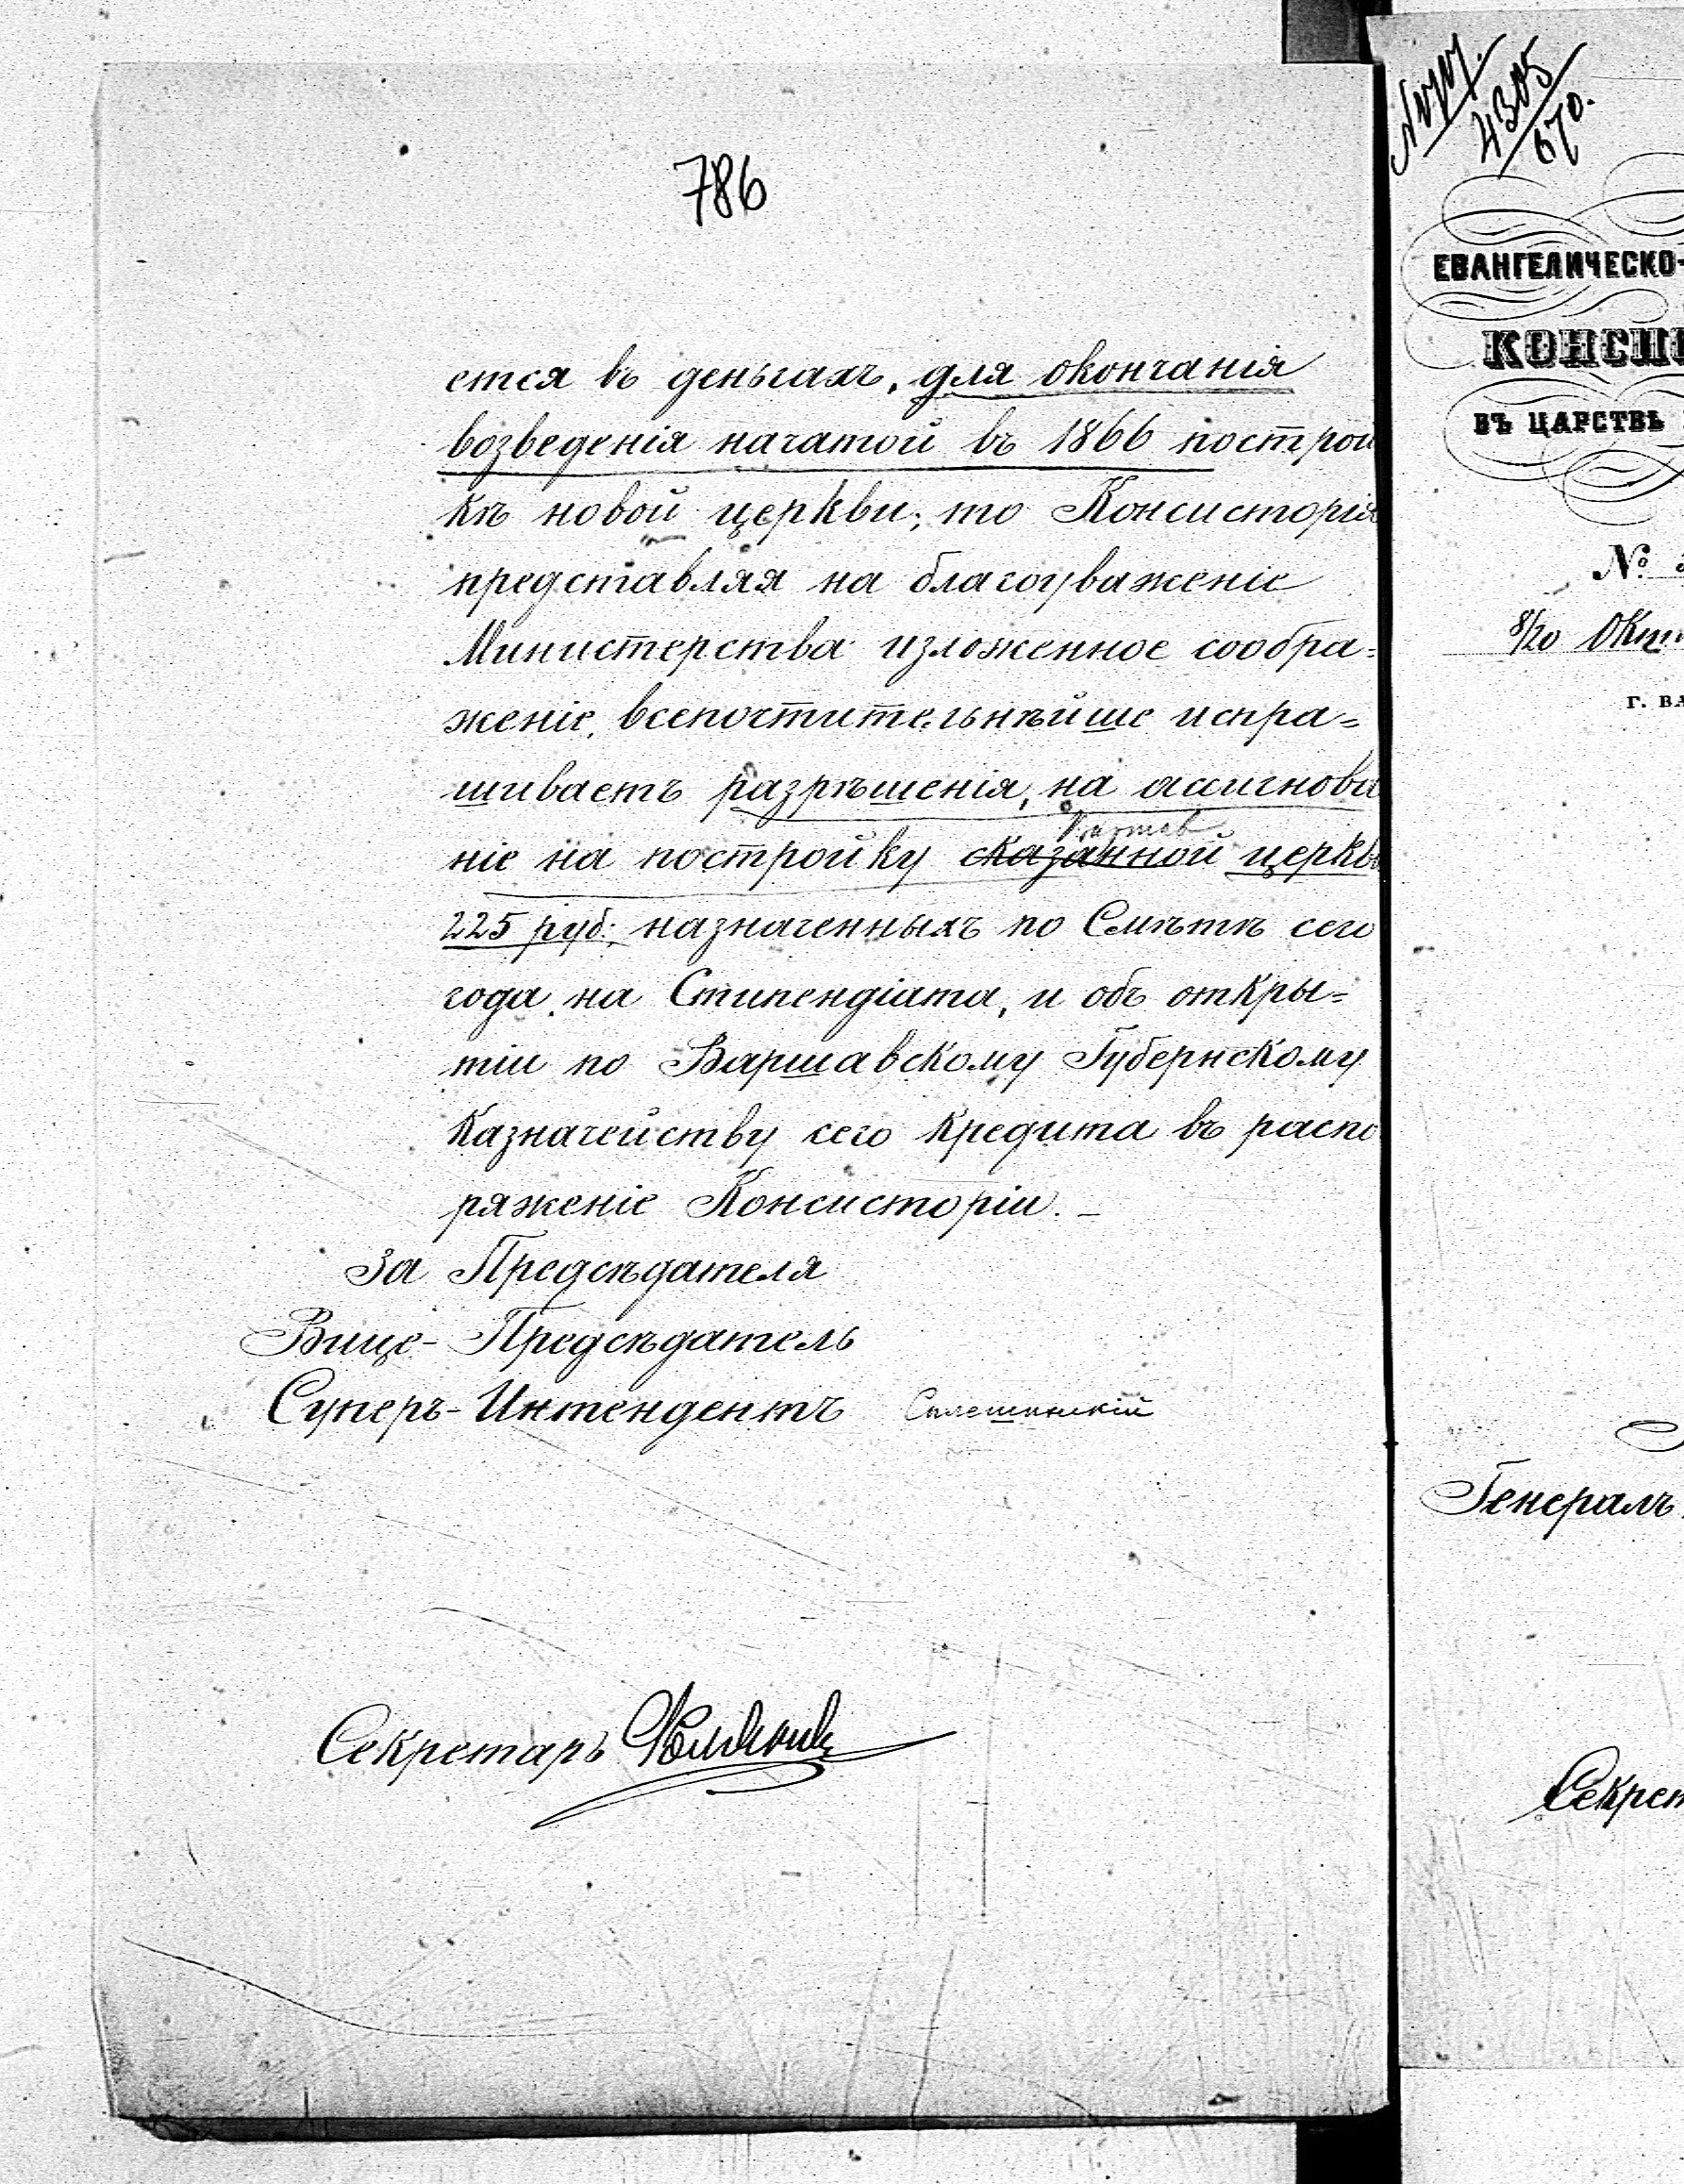 786
ется въ деньгахъ, для окончанія
возведенія начатой въ 1866 построй
кѣ новой церкви; то Консисторія
представляя на благоуваженіе
Министерства изложенное сообра=
женіе, всепочтительнѣйше испра=
шиваетъ разрѣшенія, на ассигнова
ніе на постройку сказанной церкви
225 руб: назначенныхъ по Смѣтѣ сего
года, на Стипендіата, и объ откры=
тіи по Варшавскому Губернскому
Казначейству сего кредита въ распо
ряженіе Консисторіи. –
За Предсѣдателя
Вице-Предсѣдатель
Суперъ-Интендентъ
Секретарь
4305/670.
ЕВАНГЕЛИЧЕСКО-
КОНСИ
ВЪ ЦАРСТВѢ
№
8/20 Окт
Г. ВА
Генералъ
Секрет